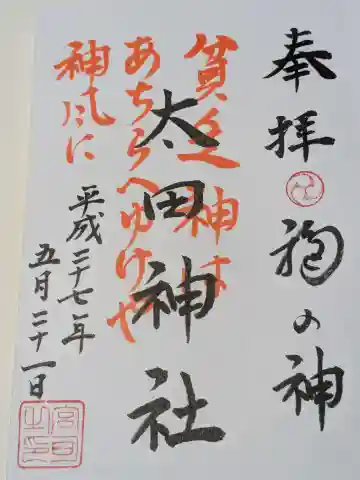 奉拝
神
太田神社
貧乏神は
あちらへゆけや
神風に
平成二十七年
五月二十一日
宮司之印